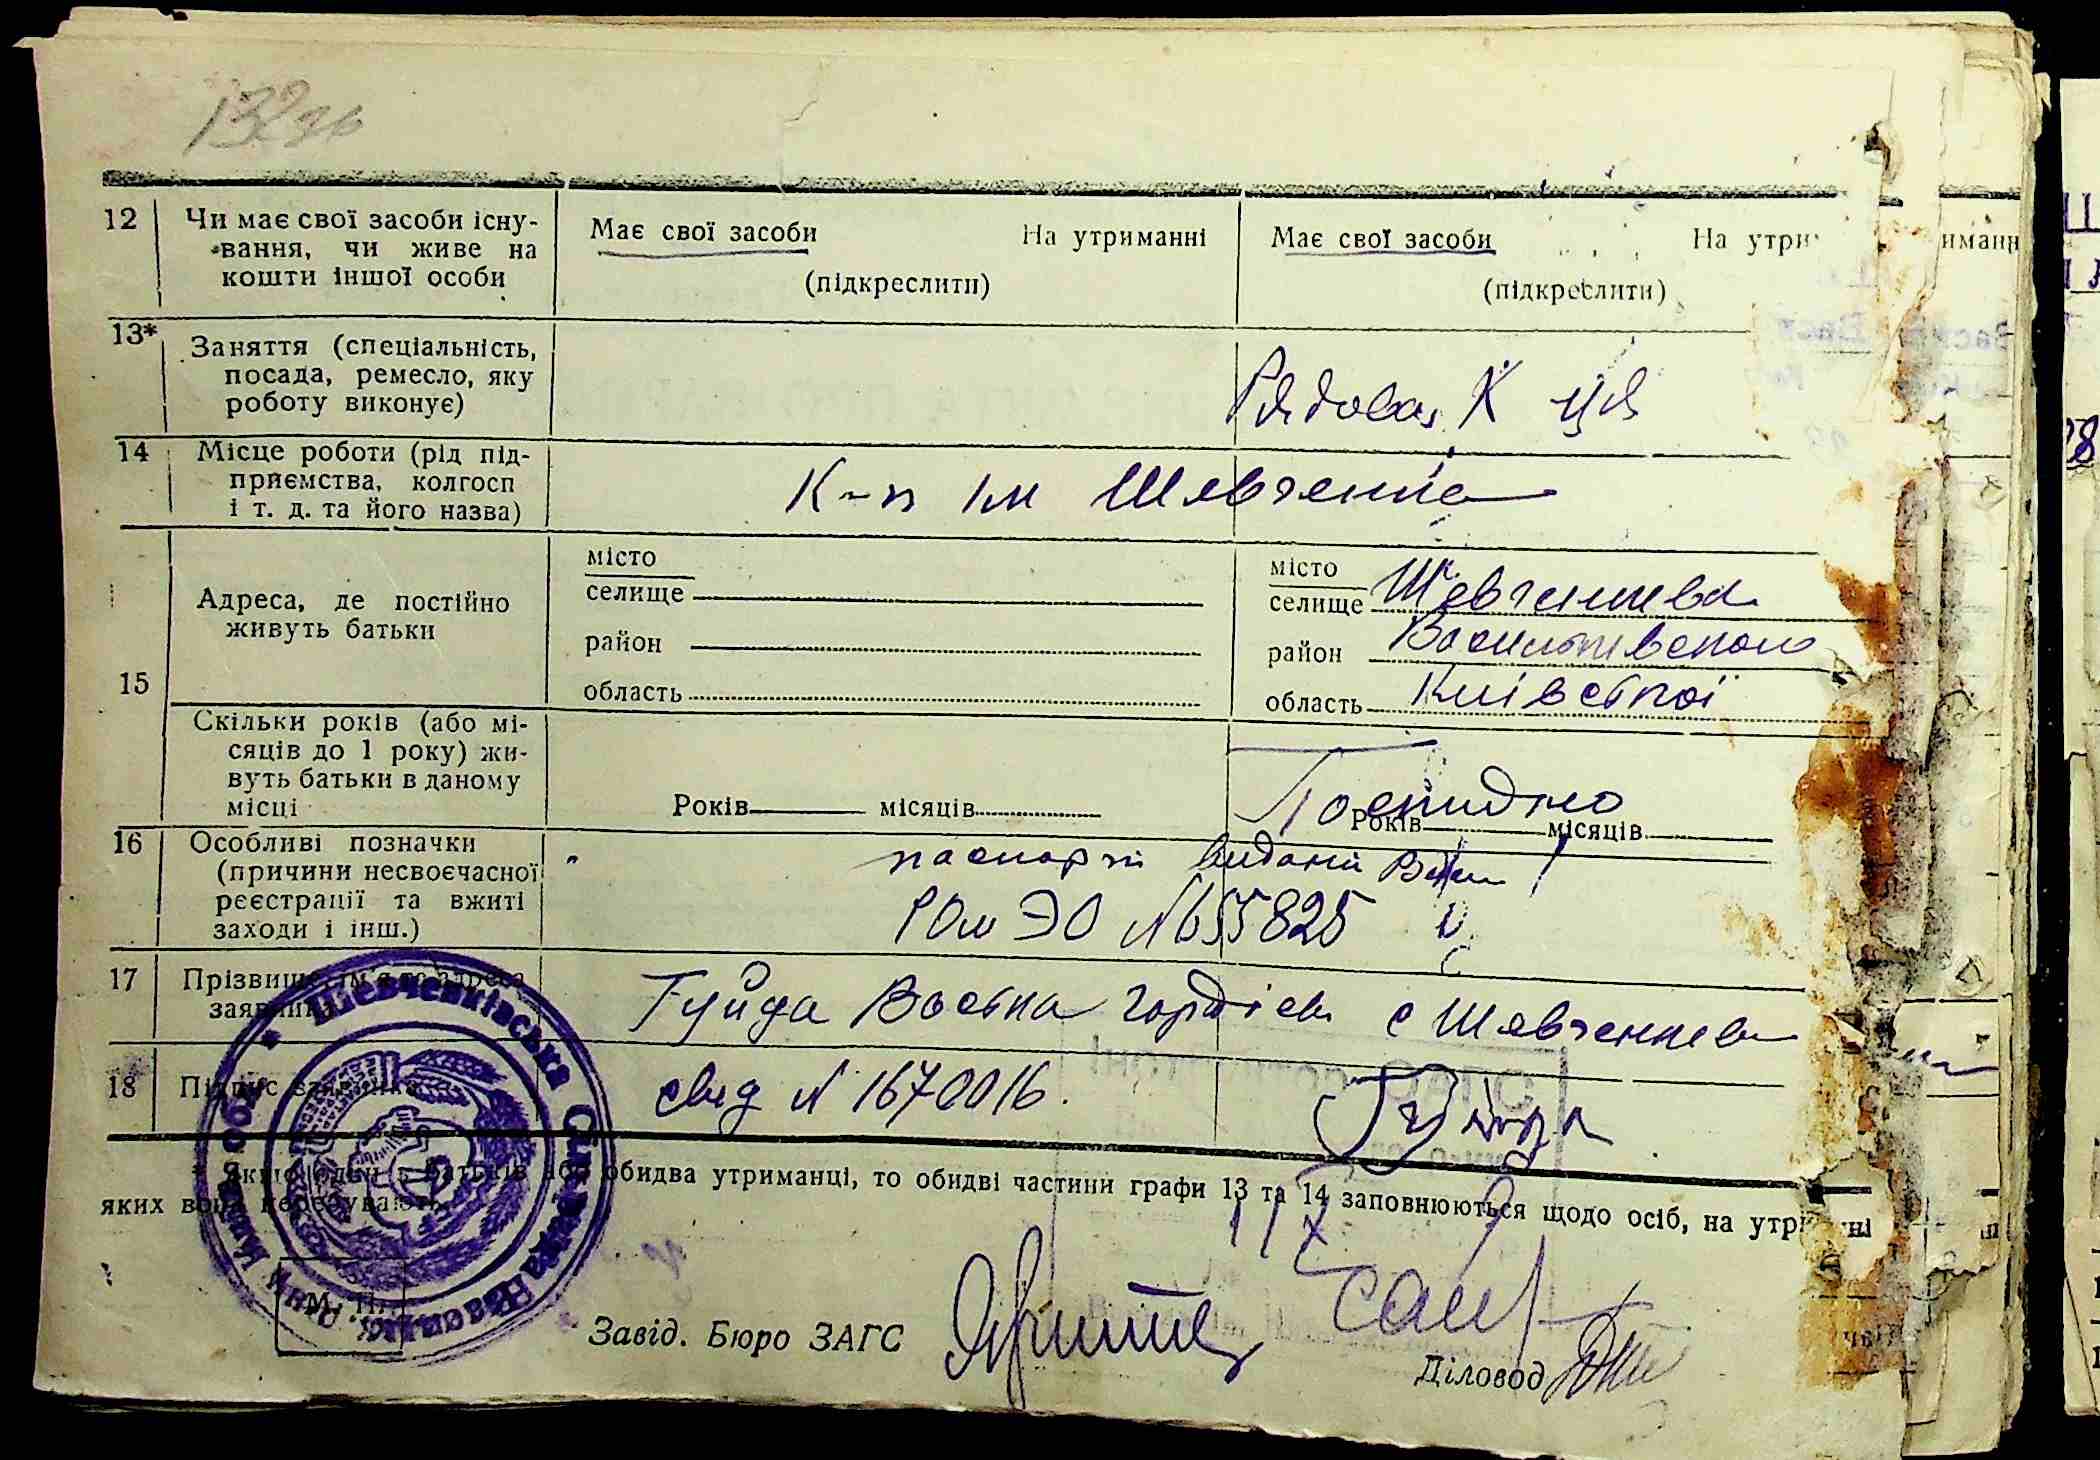 132зв
12 Чи має свої засоби існу-
вання, чи живе на
кошти іншої особи
Має свої засоби На утриманні
(підкреслити)
Має свої засоби На утри
(підкреслити)
13* Заняття (спеціальність,
посада, ремесло, яку
роботу виконує)
Рядовая К
14 Місце роботи (рід під-
приємства, колгосп
і т. д. та його назва)
К-п ім Шевченка
15 Адреса, де постійно
живуть батьки
місто
селище
район
область
місто
селище Шевченкева
район Васильківського
область Київської
Скільки років (або мі-
сяців до 1 року) жи-
вуть батьки в даному
місці
Років місяців
Постійно
Років місяців
16 Особливі позначки
(причини несвоєчасної
реєстрації та вжиті
заходи і інш.)
паспорт виданий Вас
N 655825
17 Прізвище, ім'я та адреса
заявника
Гуйда с Шевченкева
18 Підпис заявника
свид N 1670016.
Гуйда
* Якщо один з батьків або обидва утриманці, то обидві частини графи 13 та 14 заповнюються щодо осіб, на утриманні
яких вони перебувають.
Шевченківська Сільська Рада Васильк. р-ну Київ. обл.
М. П.
Завід. Бюро ЗАГС
Діловод